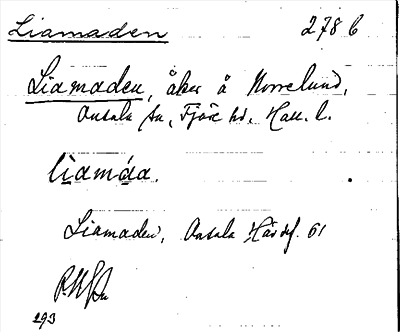 Liamaden 278 b
Liamaden, åker å Norrelund,
Onsala sn, Fjäre hd, Hall. l.
lìamáa.
Liamaden, Onsala Härdsf. 61
293